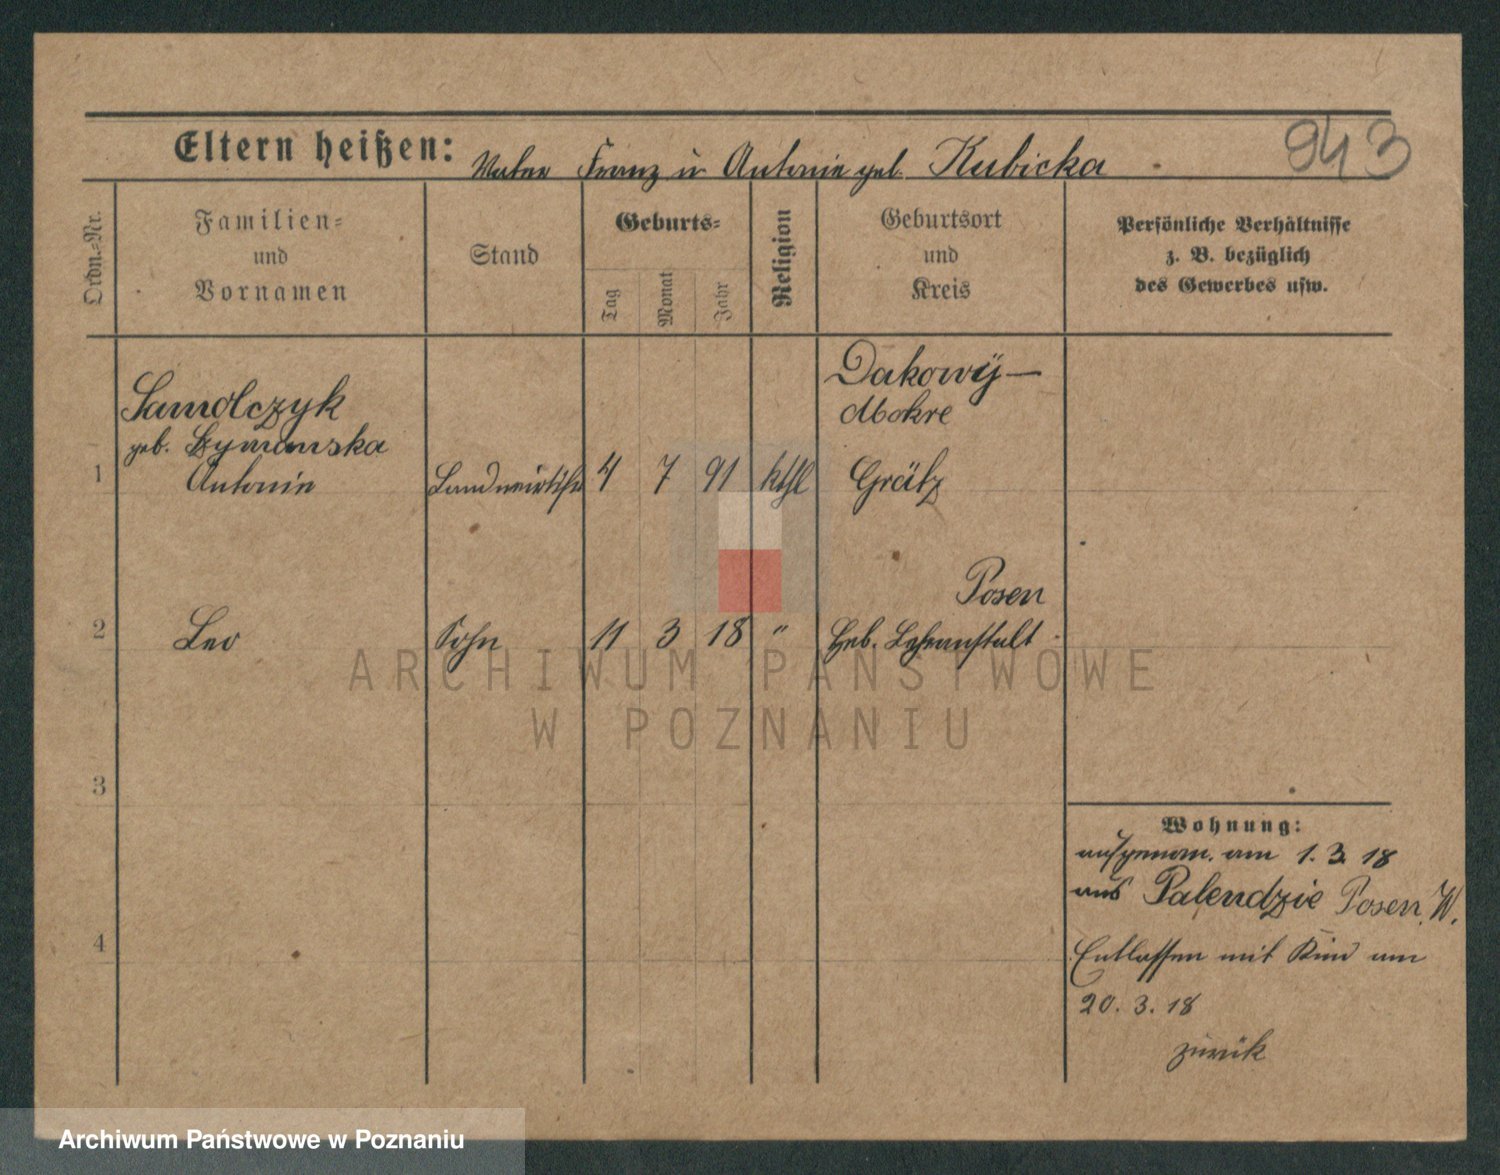 943
Eltern heißen: Vater Franz u Antonie geb. Kubicka
Ordn.=Nr.
Familien=
und
Vornamen
Stand
Geburts=
Tag
Monat
Jahr
Religion
Geburtsort
und
Kreis
Persönliche Verhältnisse
z. B. bezüglich
des Gewerbes usw.
Samolczyk
geb. Szymanska
1 Antonie Landwirtsfr 4 7 91 kthl Grätz
Dakowÿ—
Mokre
Posen
2 Leo Sohn 11 3 18 " Heb. Lehranstalt
3
4
Wohnung:
aufgenom. am 1. 3. 18
aus Palendzie Posen W.
Entlassen mit Kind am
20. 3. 18
zurük
ARCHIWUM PAŃSTWOWE
W POZNANIU
Archiwum Państwowe w Poznaniu